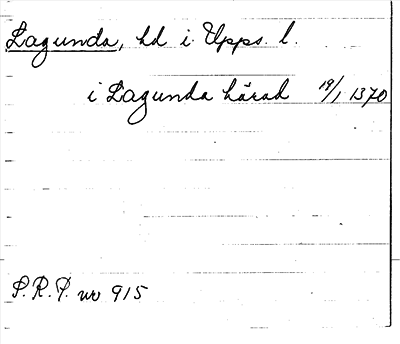 Lagunda, hd i Upps. l.
i Lagunda härad 19/1 1370
P.R.P. nr 915